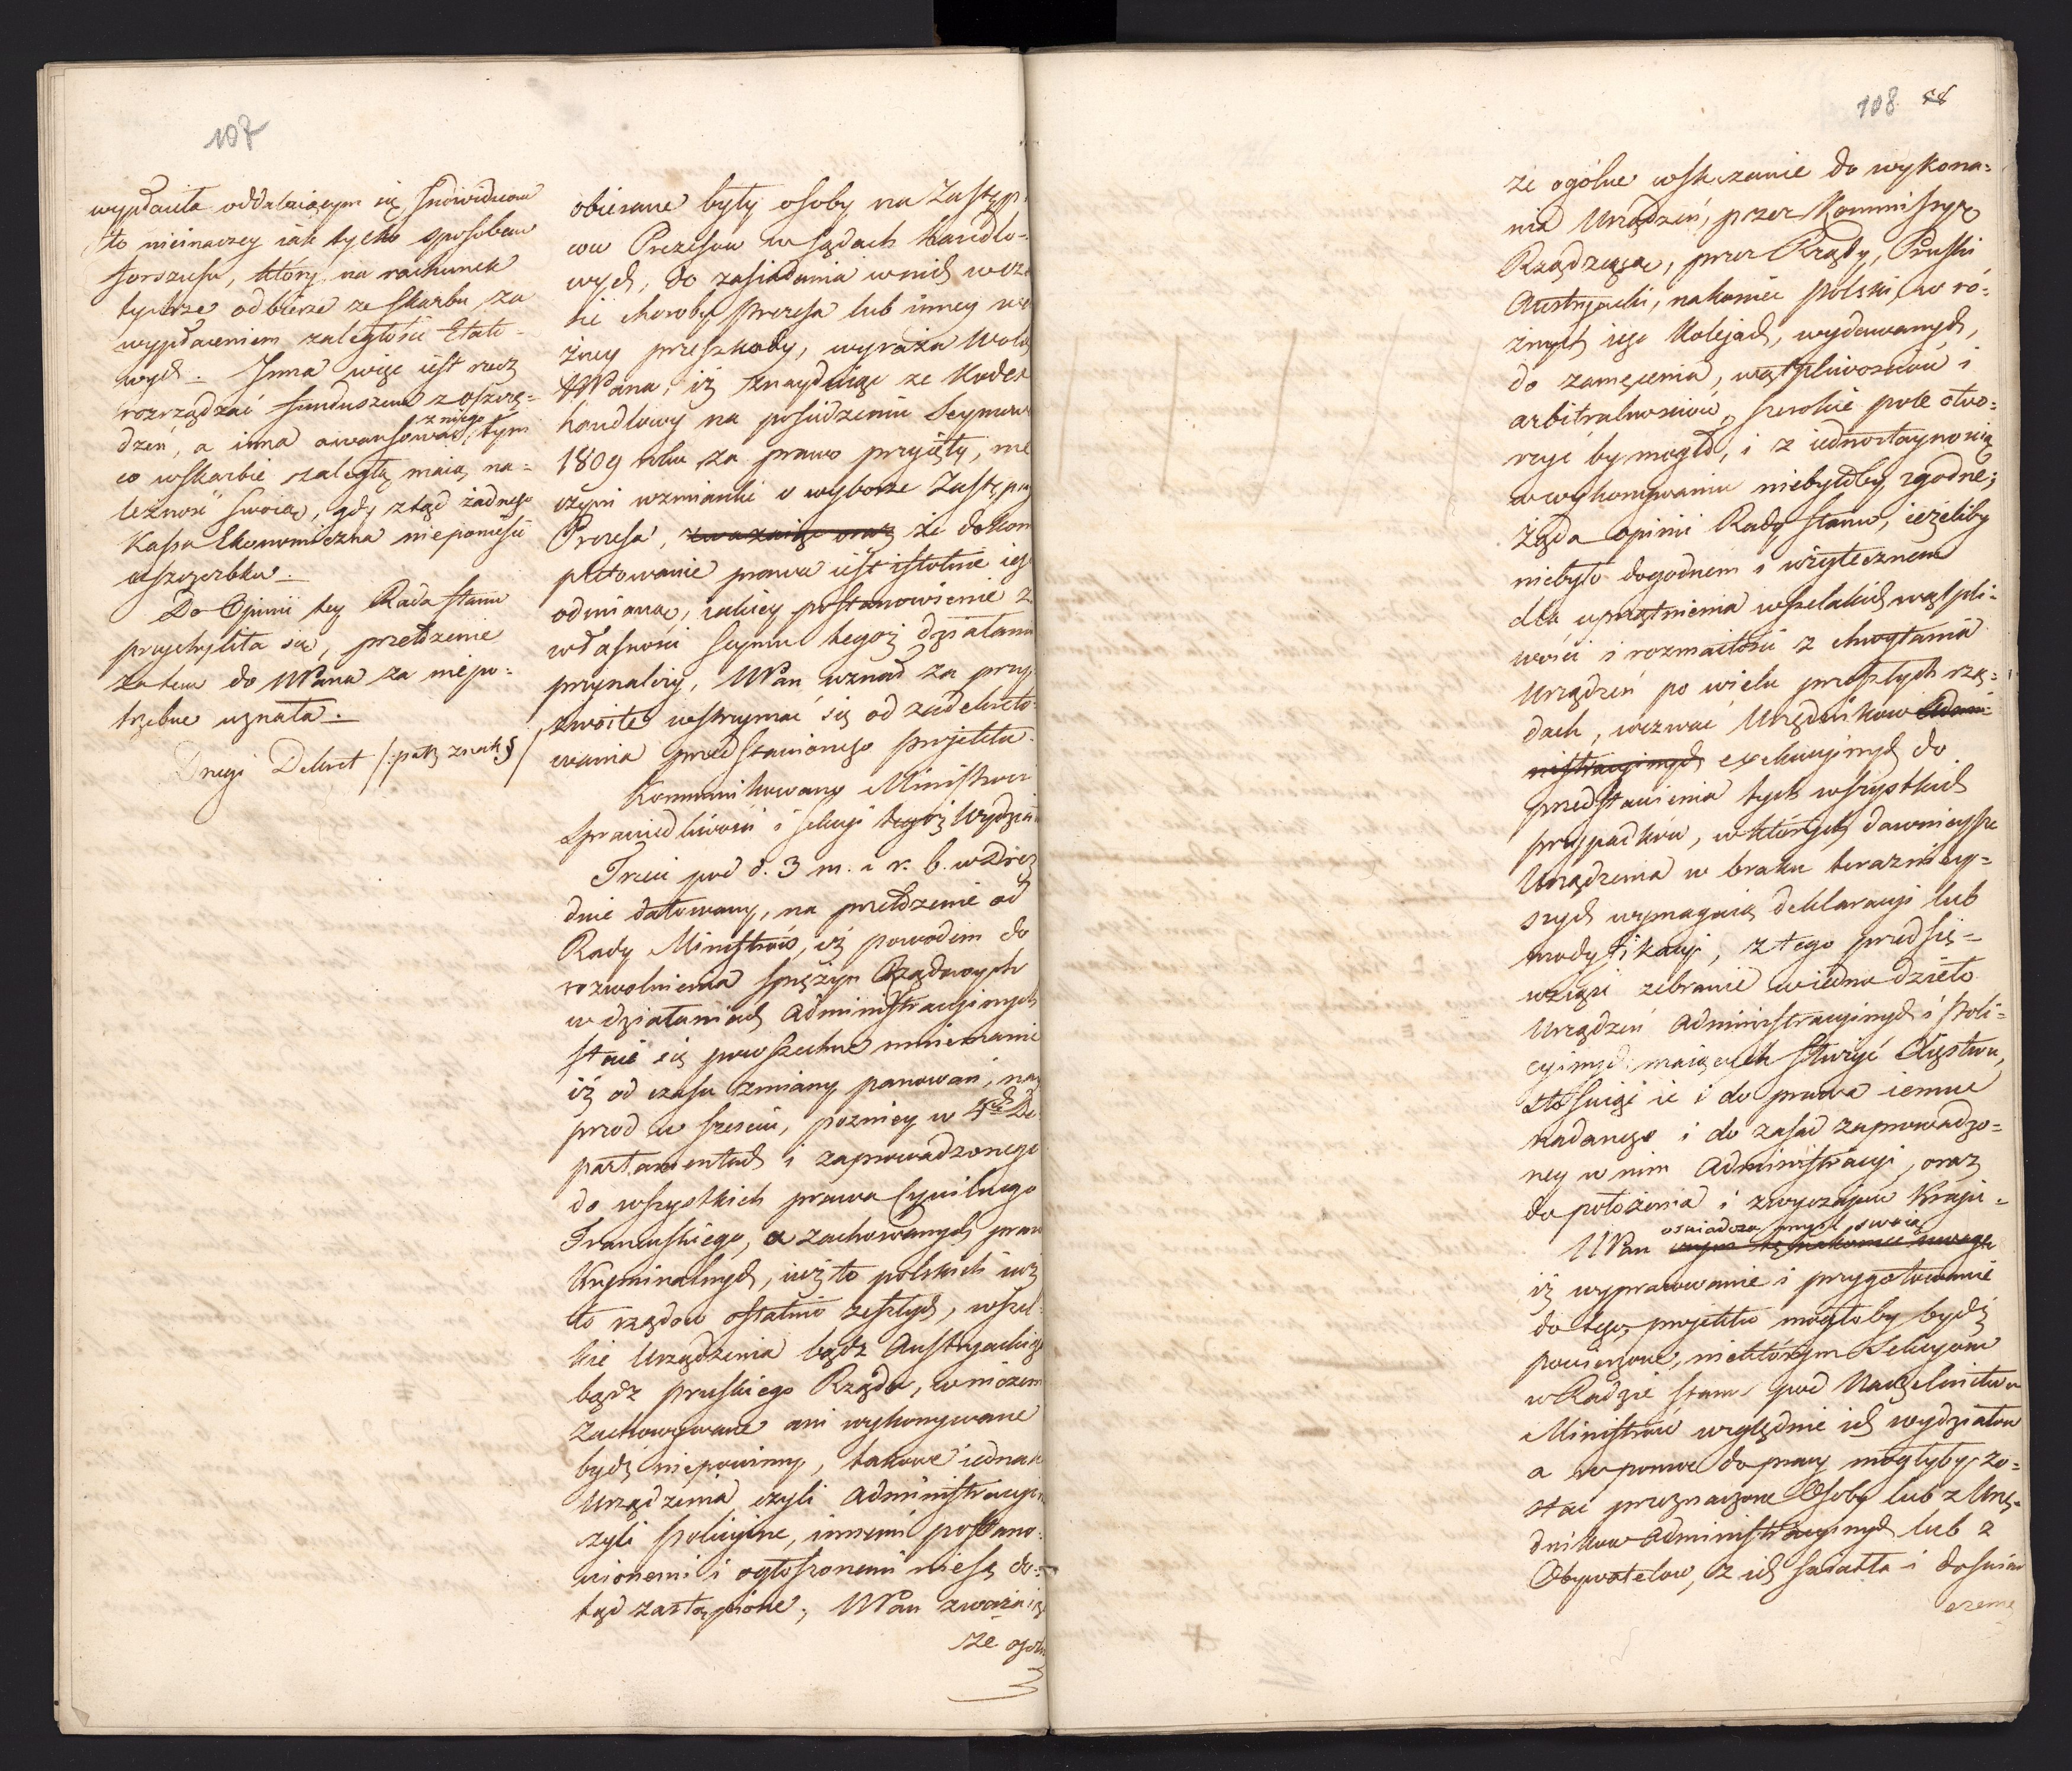 107
wypłaciła oddalaiącym się Indiwiduom
to nieinaczey iak tylko sposobem
forszusu, który na rachunek
tychże odbierze ze skarbu za
wypłaceniem zaległości Etato-
wych. Inna więc iest rzecz
rozrządzać funduszem z oszczę-
dzeń, a inna awansować z niego tym
co w skarbie zaległą maią na-
leżność swoią, gdy ztąd żadnego
Kassa Ekonomiczna nieponiesie
uszczerbku.
Do Opinii tey Rada Stanu
przychyliła się, przełożenie
zatem do NPana za niepo-
trzebne uznała.
Drugi Dekret /: patrz znak § /
obierane były osoby na Zastęp
ców Prezesow w sądach handlo-
wych, do zasiadania w nich w cza
sie choroby Prezesa lub inney wa
żney przeszkody, wyraża Wolą
NPana, iż znayduiąc że Kodex
handlowy na posiedzeniu Seymow
1809 roku za prawo przyięty, nie
czyni wzmianki o wyborze Zastępcy
Prezesa, zważaiąc oraz że dokom
pletowanie prawa iest istotnie iego
odmianą, iakiey postanowienie z
własności Seymu tegoż działaniu
przynależy, NPan uznał za przy
zwoite wstrzymać się od zadekreto-
wania przedstawionego projektu.
Kommunikowano Ministrowi
Sprawiedliwości i Sekcji tegoż Wydział
Trzeci pod d. 3 m. i r. b. w Drez
dnie datowany, na przełożenie od
Rady Ministrów, iż powodem do
rozwolnienia sprężyn Rządowych
w działaniach Administracyinych
staie się powszechne mniemanie
iż od czasu zmiany panowań, nay
przod w sześciu, poźniey w 4ch De
partamentach i zaprowadzonego
do wszystkich prawa Cywilnego
Francuskiego, a zachowanych praw
Kryminalnych, iuż to polskich iuż
to rządow ostatnio zeszłych, wszel
kie Urządzenia bądź Austryackiego
bądź pruskiego Rządu, w niczem
zachowywane ani wykonywane
bydź niepowinny, takowe iednak
Urządzenia czyli Administracyine
czyli Policyine, innemi postano-
wionemi i ogłoszonemi niesą do-
tąd zastąpione; NPan zważaiąc
że ogolne
108 58
że ogólne wskazanie do wykona-
nia Urządzeń, przez Kommissyą
Rządzącą, przez Rządy, Pruski
Austryacki, nakoniec Polski, w ró-
żnych iego Kolejach, wydawanych,
do zamęcenia, wątpliwosciow i
arbitralnosciow, szerokie pole otwo-
rzyć by mogło, i z iednostaynością
w wykonywaniu niebyłoby zgodne;
żąda opinii Rady Stanu, ieżeliby
niebyło dogodnem i użytecznem
dla uprzątnienia wszelakich wątpli-
wości i rozmaitości z
Urządzeń po wielu przeszłych rzą-
dach, wezwać Urzędnikow Admi
nistracyinych exekucyinych do
przedstawienia tych wszystkich
przypadków, w których dawnieysze
Urządzenia w braku terazniey-
szych wymagaią deklaracyi lub
modyfikacyi, z tego przedsię-
wziąść zebranie w iedno dzieło
Urządzeń Administracyinych i Poli-
cyinych maiących służyć Xięstwu,
stosuiąc ie i do prawa iemu
nadanego i do zasad zaprowadzo-
ney w nim Administracyi, oraz
do położenia i zwyczaiow Kraju.
NPan oświadcza myśl swoią
iż wypracowanie i przygotowanie
do tego projektu mogłoby bydź
powierzone, niektórym Sekcyom
w Radzie Stanu pod Naczelnictwem
Ministrów względnie ich wydziałow
a w pomoc do pracy mogłyby zo-
stać przeznaczone Osoby lub z Urzę-
dnikow Administracyinych lub z
Obywatelow, z ich światła i doświad
czenia